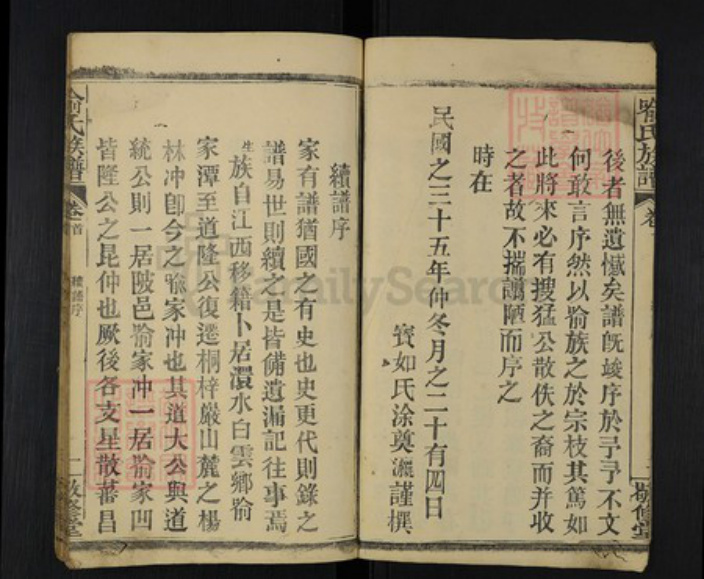 喻氏族譜
後者無遺憾矣譜旣竣序於予予不文
何敢言序然以喻族之於宗枝其篤如
此將來必有搜猛公散佚之裔而并收
之者故不揣譾陋而序之
時在
民國之三十五年仲冬月之二十有四日
寳如氏涂奠瀛謹撰
敬修堂
續譜序
家有譜猶國之有史也史更代則錄之
譜易世則續之是皆備遺漏記往事焉
族自江西移籍卜居澴水白雲鄉喻
家潭至道隆公復遷桐梓嚴山麓之楊
林冲卽今之喻家冲也其道大公與道
統公則一居陂邑喻家冲一居喻家凹
皆隆公之昆仲也厥後各支星散蕃昌
喻氏族譜
卷首
續譜序
二
敬修堂
FamilySearch